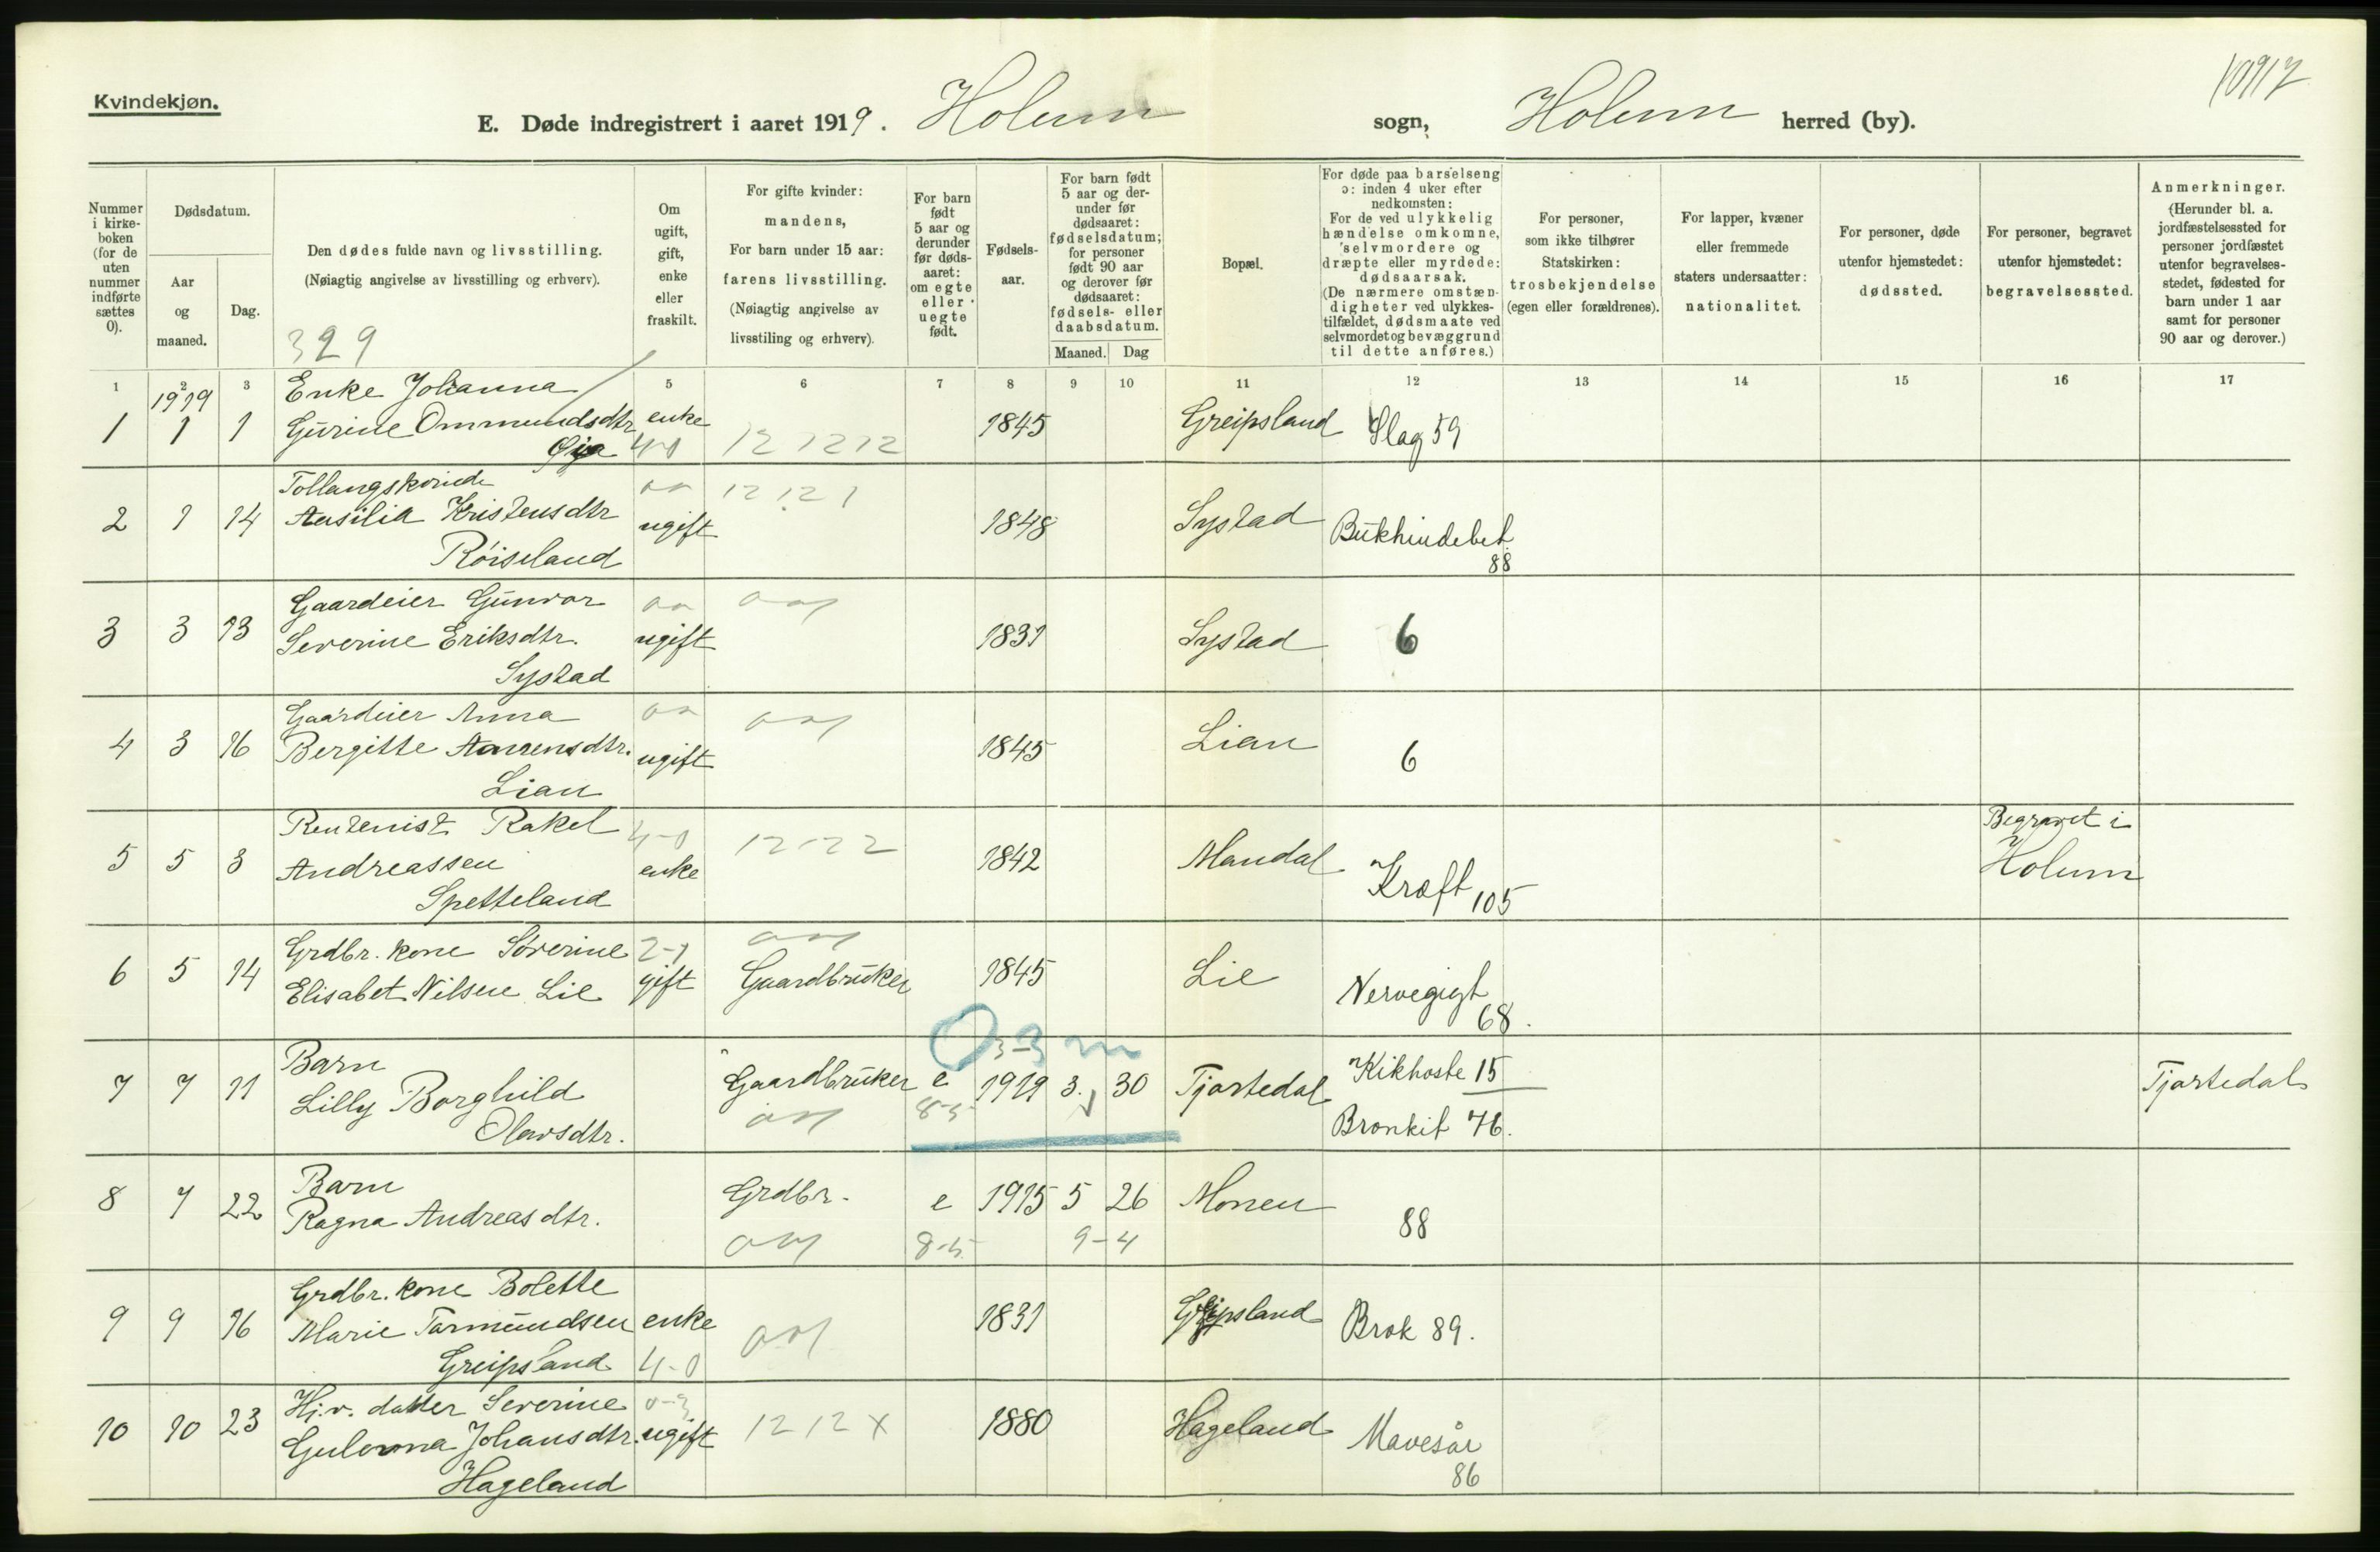 Kvindekjøn.
E. Døde indregistrert i aaret 1919. Holum sogn, Holum herred (by).
10917
Nummer i kirkeboken (for de uten nummer indførte sættes 0).
Dødsdatum.
Aar og maaned.
Dag.
Den dødes fulde navn og livsstilling.
(Nøiagtig angivelse av livsstilling og erhverv).
329
Om ugift, gift, enke eller fraskilt.
For gifte kvinder: mandens,
For barn under 15 aar: farens livsstilling.
(Nøiagtig angivelse av livsstilling og erhverv).
For barn født 5 aar og derunder før dødsaaret: om egte eller uegte født.
Fødselsaar.
For barn født 5 aar og derunder før dødsaaret: fødselsdatum; for personer født 90 aar og derover før dødsaaret: fødsels- eller daabsdatum.
Maaned. Dag
Bopæl.
For døde paa barselseng ɔ: inden 4 uker efter nedkomsten:
For de ved ulykkelig hændelse omkomne, selvmordere og dræpte eller myrdede: dødsaarsak.
(De nærmere omstændigheter ved ulykkestilfældet, dødsmaate ved selvmordet og bevæggrund til dette anføres.)
For personer, som ikke tilhører Statskirken: trosbekjendelse (egen eller forældrenes).
For lapper, kvæner eller fremmede staters undersaatter: nationalitet.
For personer, døde utenfor hjemstedet: dødssted.
For personer, begravet utenfor hjemstedet: begravelsessted.
Anmerkninger.
(Herunder bl. a. jordfæstelsessted for personer jordfæstet utenfor begravelsesstedet, fødested for barn under 1 aar samt for personer 90 aar og derover.)
1 2 3 5 6 7 8 9 10 11 12 13 14 15 16 17
1919 Enke Johanna
1 1 1 Gurine Ommundsdtr enke 1845 Greipsland Slag 59
Øya 4-0 12 12 12
Tollangskvinde 12 12 1
2 1 14 Aasilia Kristensdtr ugift 1848 Systad Bukhindebet.
Røiseland 88
Gaardeier Gunvor
3 3 13 Severine Eriksdtr. ugift 1831 Systad 6
Systad
Gaardeier Anna
4 3 16 Bergitte Aanensdtr. ugift 1845 Lian 6
Lian
Rentenist Rakel 4-0 Begravet i
5 5 3 Andreassen enke 12-22 1842 Mandal Kræft 105 Holum
Spetteland
Grdbr. kone Severine 2-1
6 5 14 Elisabet Nilsen Lie gift Gaardbruker 1845 Lie Nervegigt
68.
Barn 0 3-3 m
7 7 11 Lilly Borghild Gaardbruker e 1919 3. 30 Tjortedal Kikhoste 15 Tjortedal
Olavsdtr. 8-5 Bronkit 76.
Barn
8 7 22 Ragna Andreasdtr. Grdbr. e 1915 5 26 Monen 88
8-5 9-4
Grdbr. kone Bolette
9 9 16 Marie Tormundsen enke 1831 Greipsland Brok 89.
Greipsland 4-0
Hj.v. datter Severine 0-3
10 10 23 Gulovna Johansdtr. ugift 12 12 X 1880 Hageland Mavesår
Hageland 86